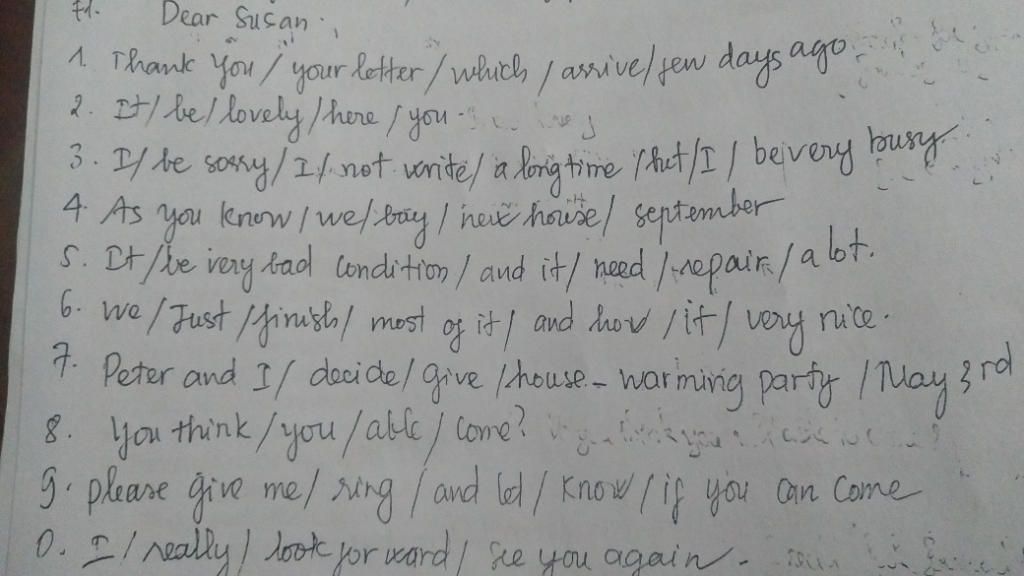 Dear Susan.
1. Thank you / your letter / which / arrive / few days ago.
2. It / be / lovely / here / you.
3. I / be sorry / I / not write / a long time / but / I / be very busy.
4. As you know / we / buy / new house / september
5. It / be very bad condition / and it / need / repair / a lot.
6. we / Just / finish / most of it / and how / it / very nice.
7. Peter and I / decide / give / house-warming party / May 3rd
8. You think / you / able / come?
9. please give me / ring / and let / know / if you can come
0. I / really / look forward / see you again.